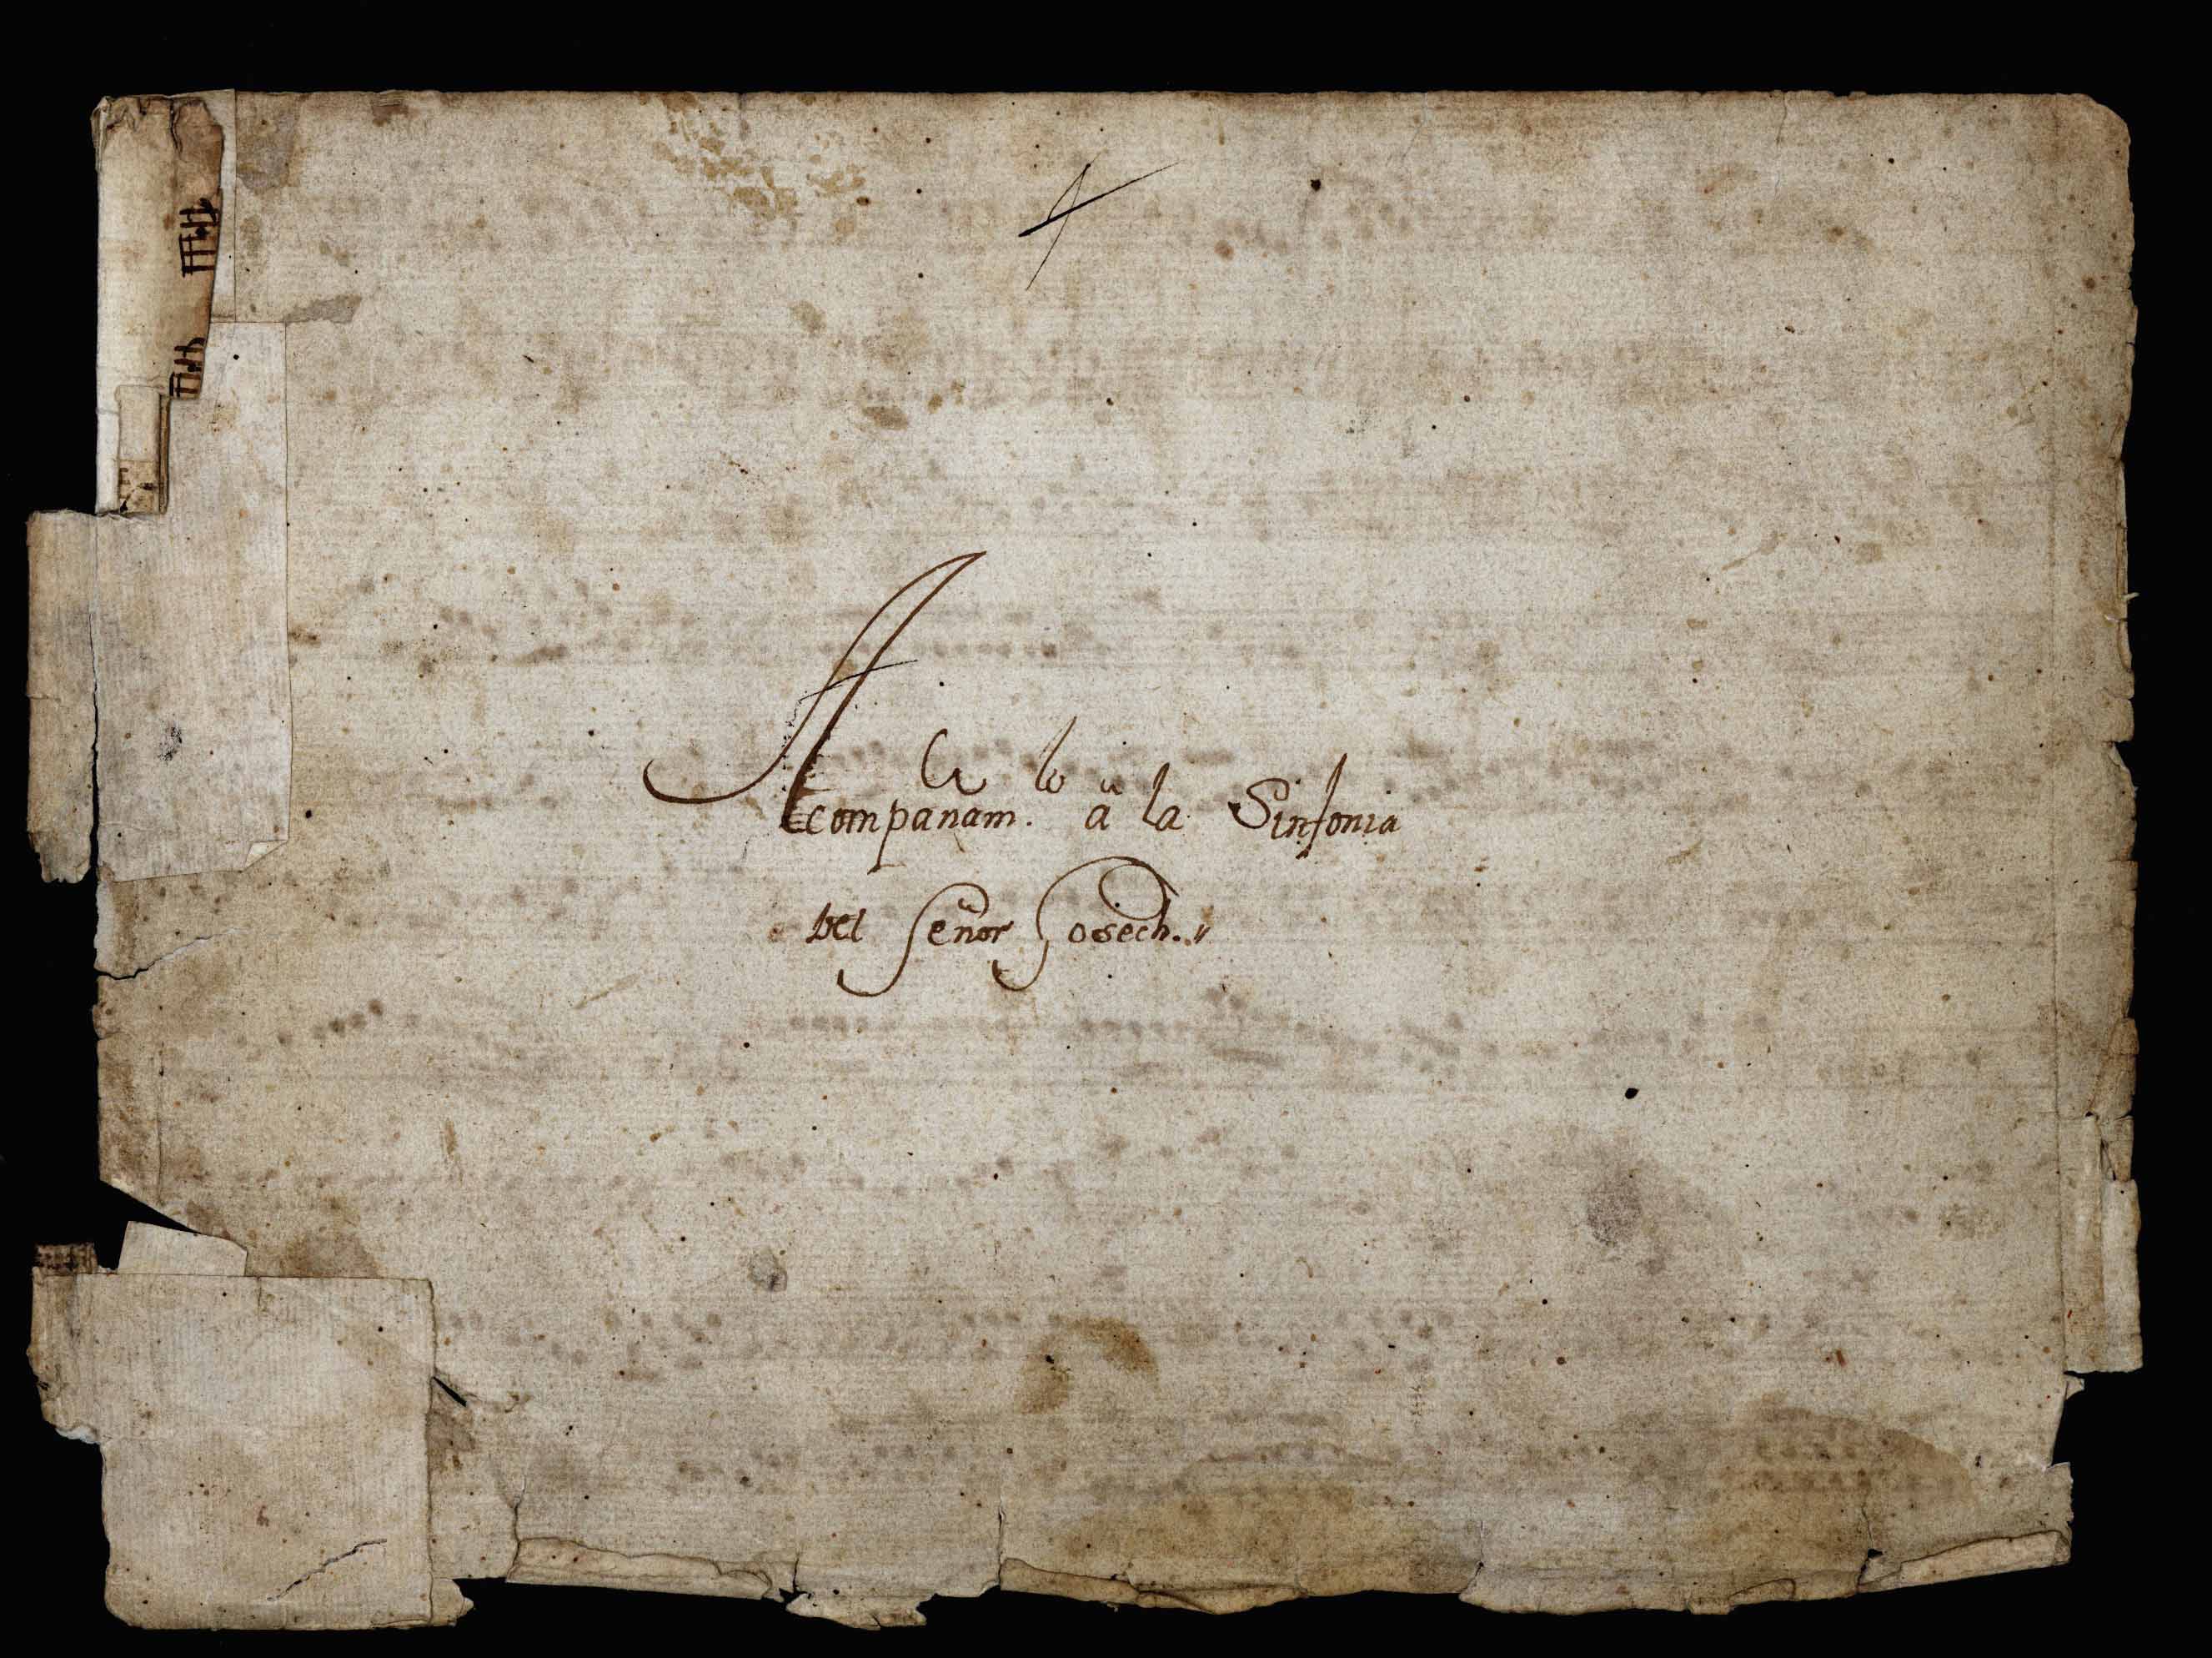 Acompañam.to â la Sinfonia
Del Señor Gosech.//